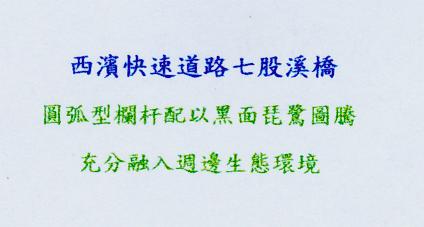 西濱快速道路七股溪橋
圓弧型欄杆配以黑面琵鷺圖騰
充分融入週邊生態環境